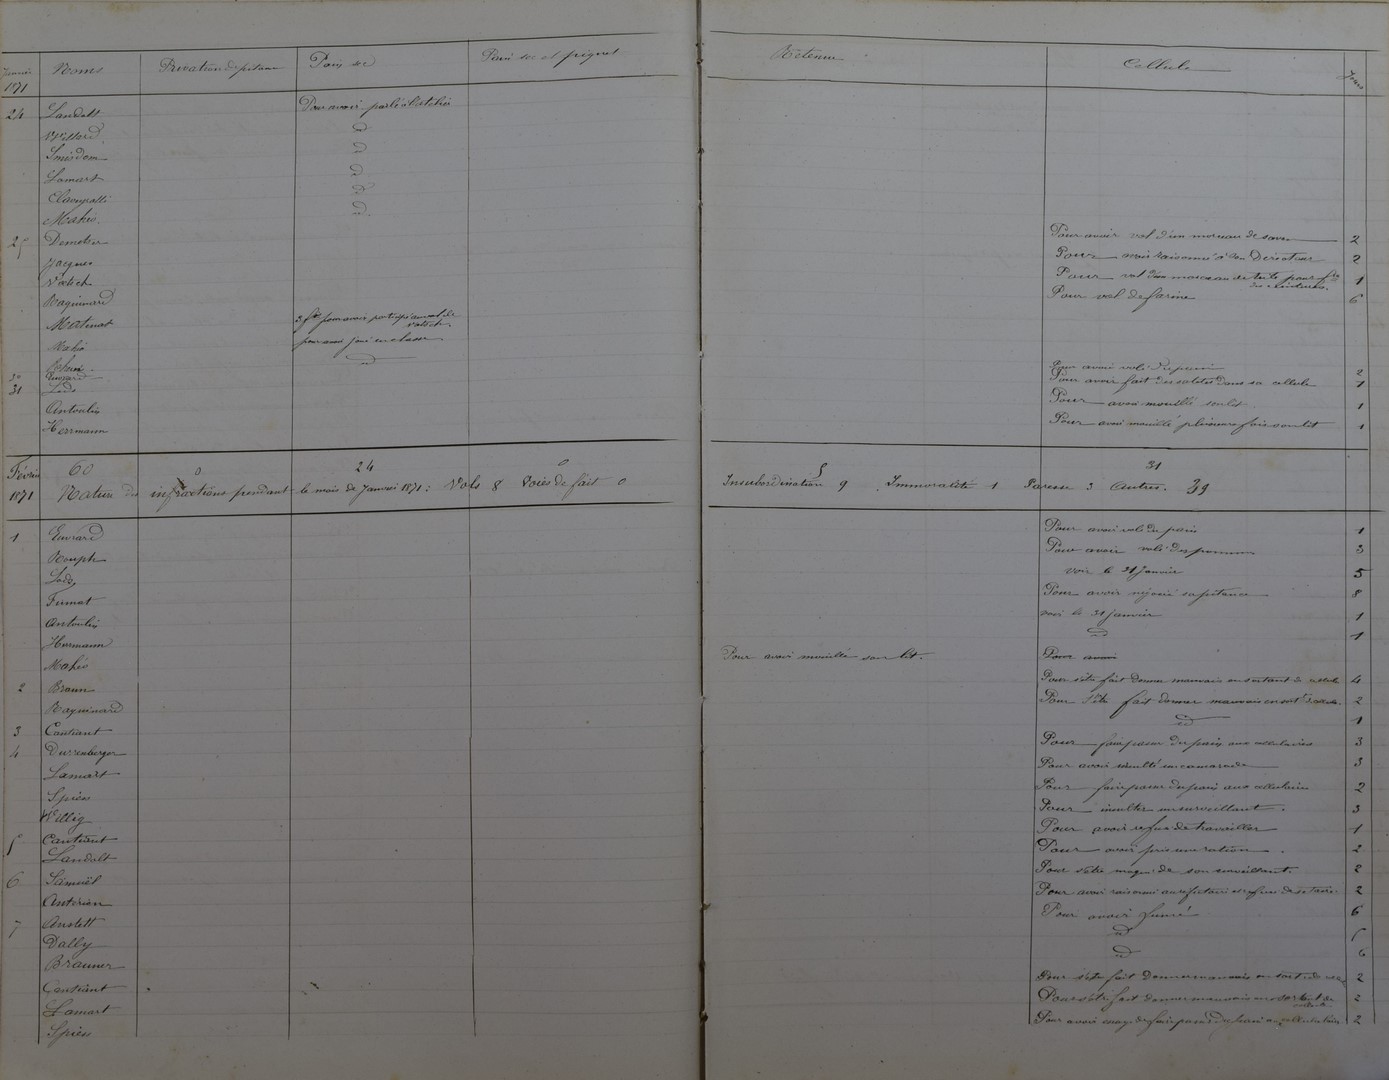 Janvier 1871 Noms Privation de pitance Pain sec Pain sec et piquet Retenue Cellule Jours
24 Landolt Pour avoir parlé à l'atelier
Willard d
d
Lamart d
d
Mahié d
25 Demelier Pour avoir vol d'un morceau de savon 2
Jacques Pour avoir raisonné à son Directeur 2
Pour vol d'un morceau de toile pour f^re des ceintures. 1
Raguinard Pour vol de farine 6
Matinat 3 f^s pour avoir participé au vol de
Mahié pour avoir joué en classe
d
30 Euvrard Pour avoir volé du pain 2
31 Lods Pour avoir fait des saletés dans sa cellule 1
Antoulis Pour avoir mouillé son lit 1
Herrmann Pour avoir mouillé plusieurs fois son lit 1
Février 1871 60 0 24 0 5 31
Nature des infractions pendant le mois de Janvier 1871: Vols 8 Voies de fait 0 Insubordination 9 Immoralité 1 Paresse 3 Autres. 39
1 Euvrard Pour avoir volé du pain 1
Rouph Pour avoir volé des pommes 3
Lods voir le 31 Janvier 5
Fumat Pour avoir sa pitance 8
Antoulis voir le 31 Janvier 1
Hermann d 1
Mahié Pour avoir mouillé son lit. Pour avoir
2 Braun Pour s'être fait donner mauvais en sortant de cellule 4
Raguinard Pour s'être fait donner mauvais en sort^t de cellule. 2
3 Cantiant d 1
4 Durrenberger Pour faire passer du pain aux cellulaires 3
Lamart Pour avoir insulté un camarade 3
Spies Pour faire passer du pain aux cellulaires 2
Willig Pour insulter un surveillant. 3
5 Cantiant Pour avoir refusé de travailler 1
Landolt Pour avoir pris une ration. 2
6 Samuël Pour s'être moqué de son surveillant. 2
Antérion Pour avoir raisonné au réfectoire et refusé de se taire. 2
7 Anstett Pour avoir fumé 6
Dally d 5
Brauner d 6
Cantiant Pour s'être fait donner mauvais en sort^t de cell. 2
Lamart Pour s'être fait donner mauvais en sortant de cellule 2
Spies Pour avoir essayé de faire passer du pain aux cellulaires 2